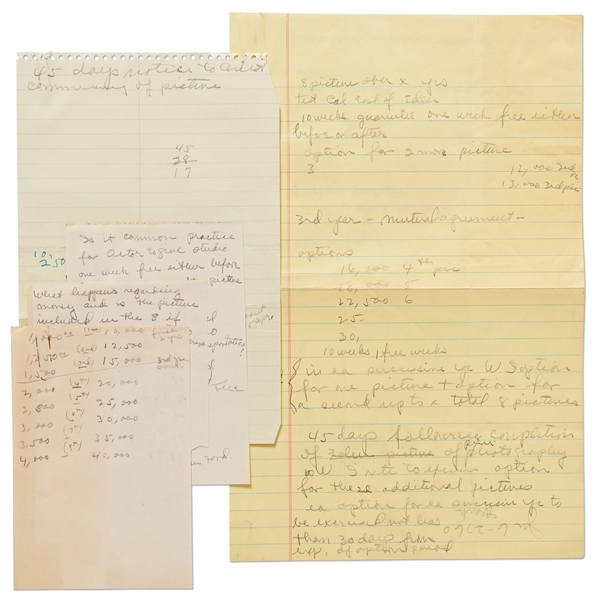 45 days notice to artist
commencing of picture
45
28
17
10,
2,50
Is it common practice
for actor to give studio
one week free either before
picture
What happens regarding
money and is the picture
included in the 8 if
1,000 (1st) 10,000 first 2 yrs
1,250 (2nd) 12,500
1,500 (3rd) 15,000 3rd pic
2,000 (4th) 20,000
2,500 (5th) 25,000
3,000 (6th) 30,000
3,500 (7th) 35,000
4,000 - 40,000
transportation?
Ford.
8 picture over x yrs
test Cal East of Eden
10 weeks guarantee one week free either
before or after
option for 2 more picture
3
12,000 2nd pic
15,000 3rd pic
3rd year - mutual agreement -
options
16,000 4th pic
18,000 5
22,500 6
25-
30,
10 weeks 1 free weeks
in ea successive yr W B option
for one picture + option for
a second up to a total 8 pictures
45 days following completion
of prin.
of photography
W B nttc to exercise option
for the additional pictures
ea option for ea successive yr to
be exercised not less
than 30 days from
exp. of option period